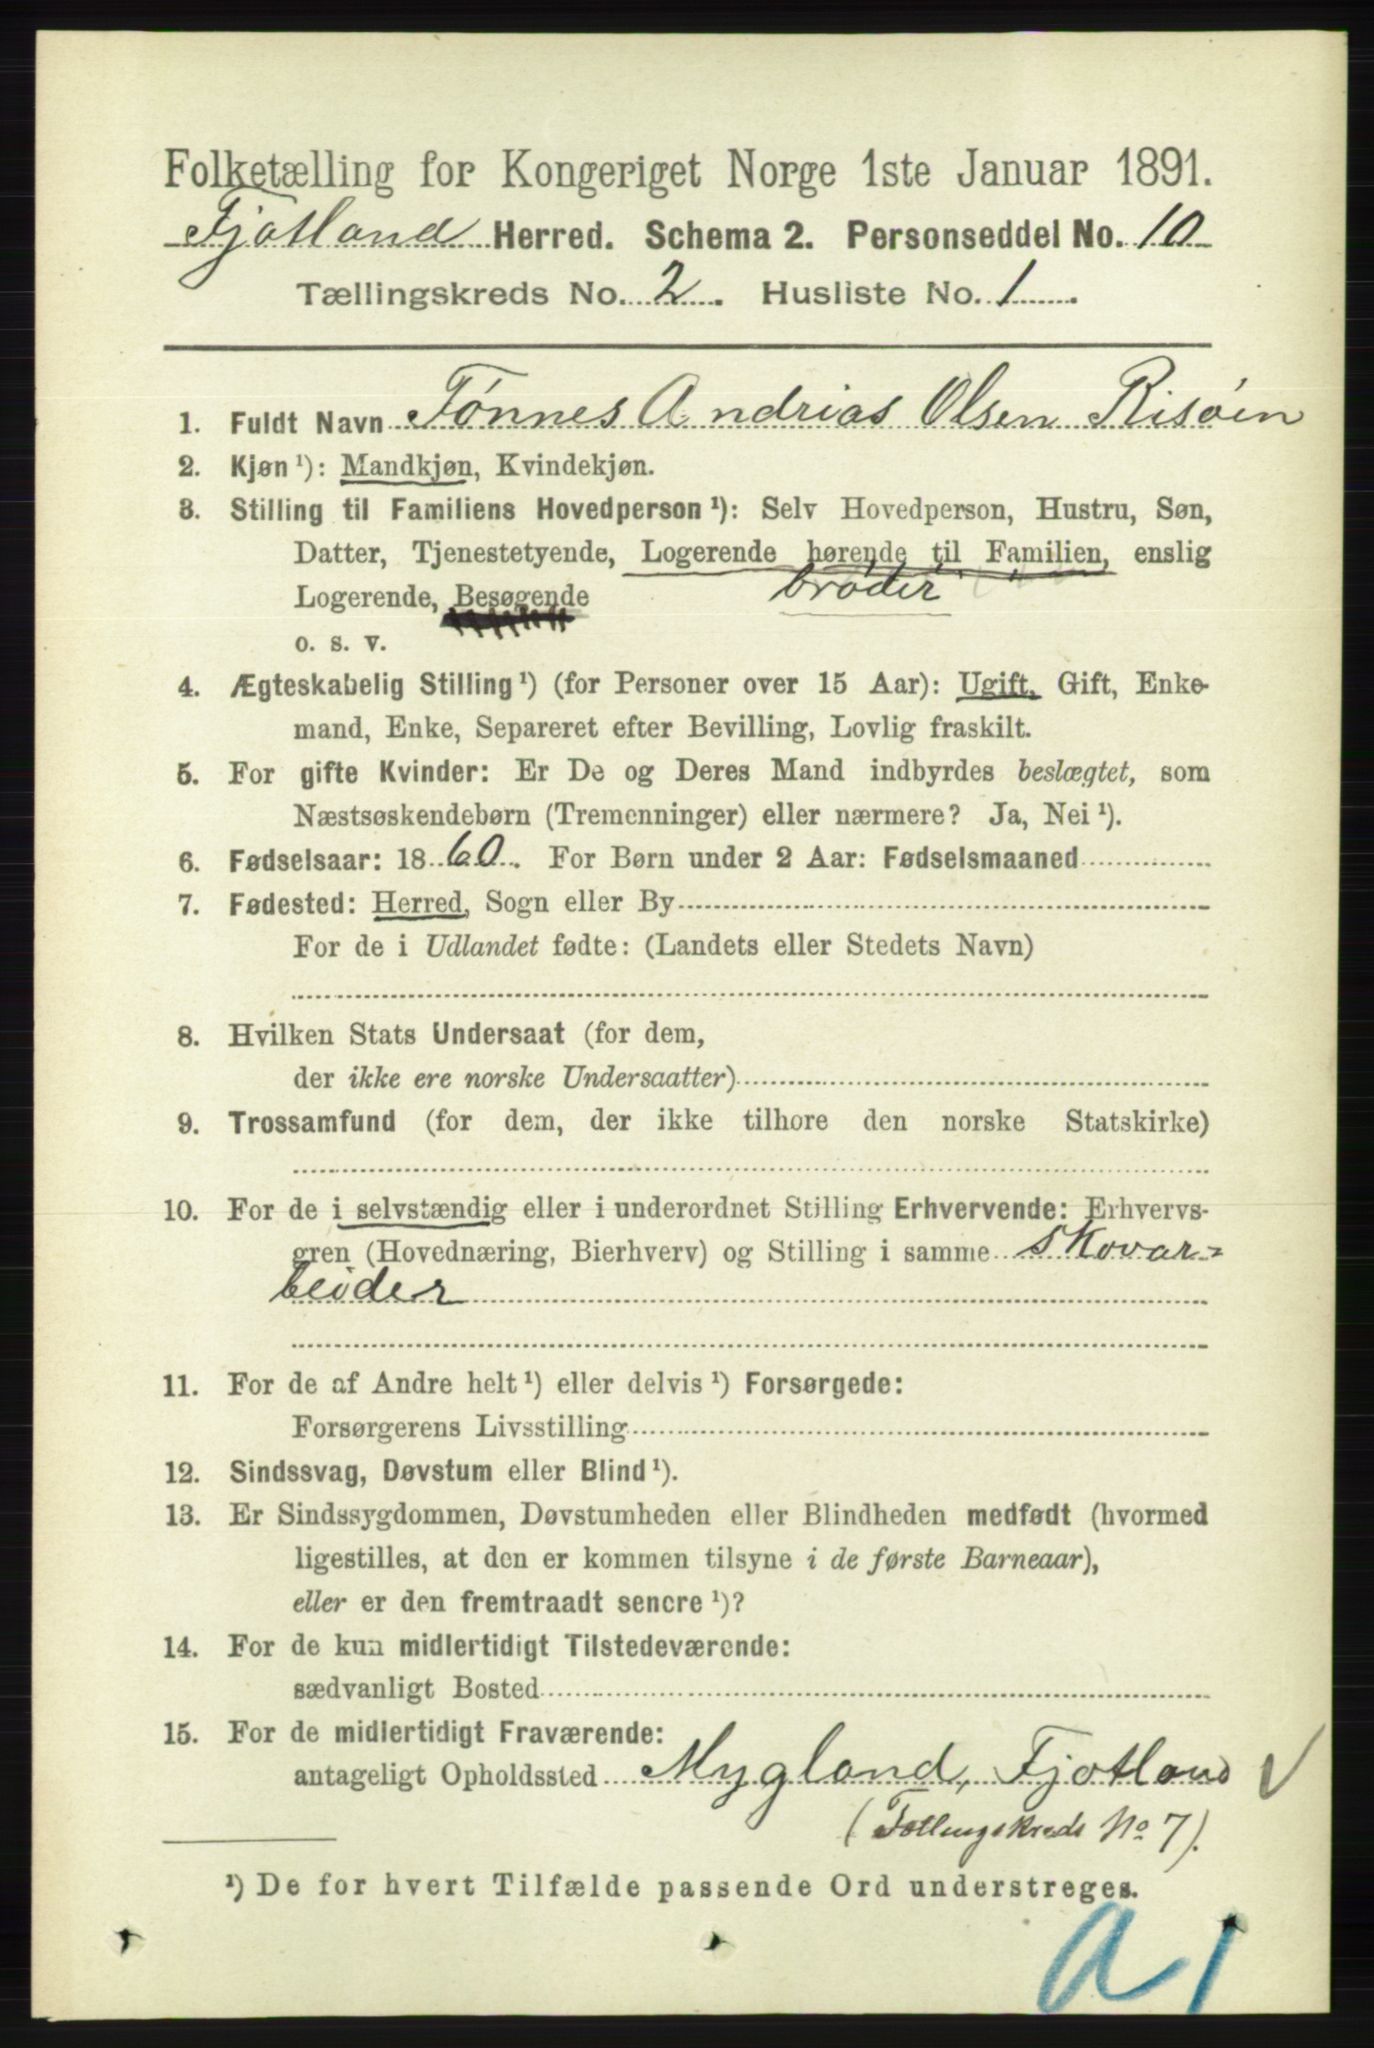 Folketælling for Kongeriget Norge 1ste Januar 1891.
Fjotland Herred. Schema 2. Personseddel No. 10
Tællingskreds No. 2. Husliste No. 1.
1. Fuldt Navn Tønnes Andrias Olsen Risøen
2. Kjøn ¹): Mandkjøn, Kvindekjøn.
3. Stilling til Familiens Hovedperson ¹): Selv Hovedperson, Hustru, Søn,
Datter, Tjenestetyende, Logerende hørende til Familien, enslig
Logerende, Besøgende brøder
o. s. v.
4. Ægteskabelig Stilling ¹) (for Personer over 15 Aar): Ugift, Gift, Enke-
mand, Enke, Separeret efter Bevilling, Lovlig fraskilt.
5. For gifte Kvinder: Er De og Deres Mand indbyrdes beslægtet, som
Næstsøskendebørn (Tremenninger) eller nærmere? Ja, Nei ¹).
6. Fødselsaar: 1860. For Børn under 2 Aar: Fødselsmaaned
7. Fødested: Herred, Sogn eller By
For de i Udlandet fødte: (Landets eller Stedets Navn)
8. Hvilken Stats Undersaat (for dem,
der ikke ere norske Undersaatter)
9. Trossamfund (for dem, der ikke tilhore den norske Statskirke)
10. For de i selvstændig eller i underordnet Stilling Erhvervende: Erhvervs-
gren (Hovednæring, Bierhverv) og Stilling i samme skovar=
beider
11. For de af Andre helt ¹) eller delvis ¹) Forsørgede:
Forsørgerens Livsstilling
12. Sindssvag, Døvstum eller Blind ¹).
13. Er Sindssygdommen, Døvstumheden eller Blindheden medfødt (hvormed
ligestilles, at den er kommen tilsyne i de første Barneaar),
eller er den fremtraadt senere ¹)?
14. For de kun midlertidigt Tilstedeværende:
sædvanligt Bosted
15. For de midlertidigt Fraværende:
antageligt Opholdssted Mygland, Fjotland
(Tællingskreds No 7).
¹) De for hvert Tilfælde passende Ord understreges.
a 1